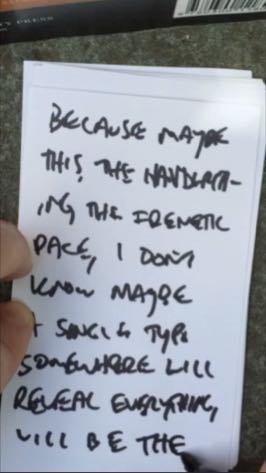 TY PRESS
BECAUSE MAYBE
THIS, THE HANDWRIT-
ING THE FRENETIC
PACE, I DON'T
KNOW MAYBE
A SINGLE TYPO
SOMEWHERE WILL
REVEAL EVERYTHING,
WILL BE THE